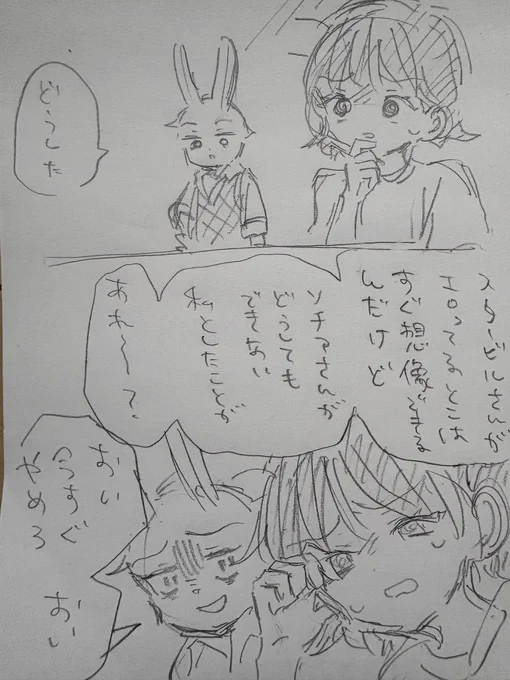 どうした
スタービルさんが
エロってるとこは
すぐ想像できる
んだけど
ソチアさんが
どうしても
できない
私としたことが
あれ〜て、
おい
今すぐ
やめろ
おい